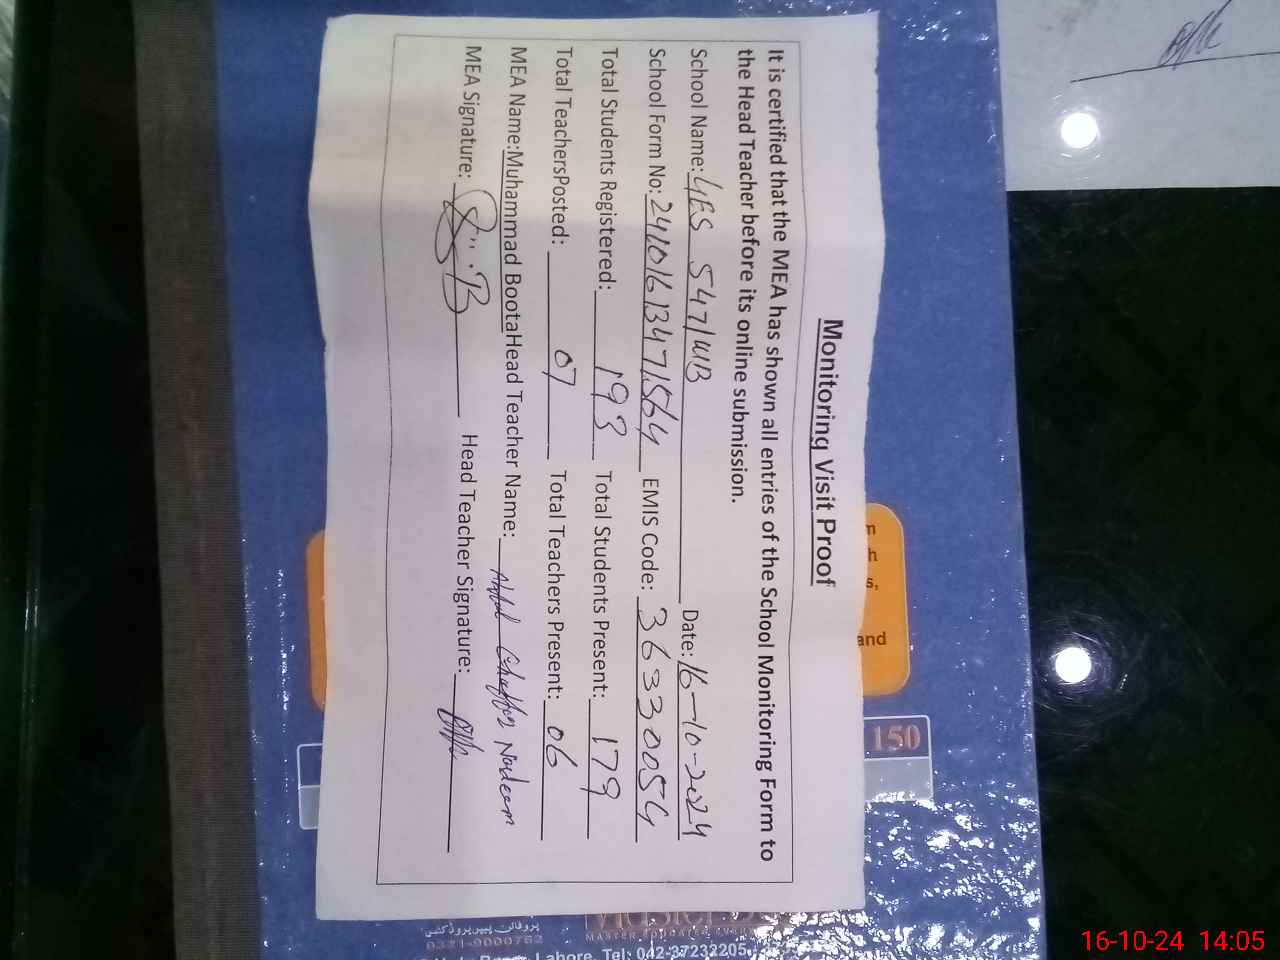 Monitoring Visit Proof
It is certified that the MEA has shown all entries of the School Monitoring Form to
the Head Teacher before its online submission.
School Name: GES 547/WB Date: 16-10-2024
School Form No: 24101613471564 EMIS Code: 36330054
Total Students Registered: 193 Total Students Present: 179
Total TeachersPosted: 07 Total Teachers Present: 06
MEA Name:Muhammad BootaHead Teacher Name: Abdul Ghaffar Nadeem
MEA Signature: Head Teacher Signature:
and
150
MASTER
0321-9000762
Lahore. Tel: 042-37232205
16-10-24 14:05